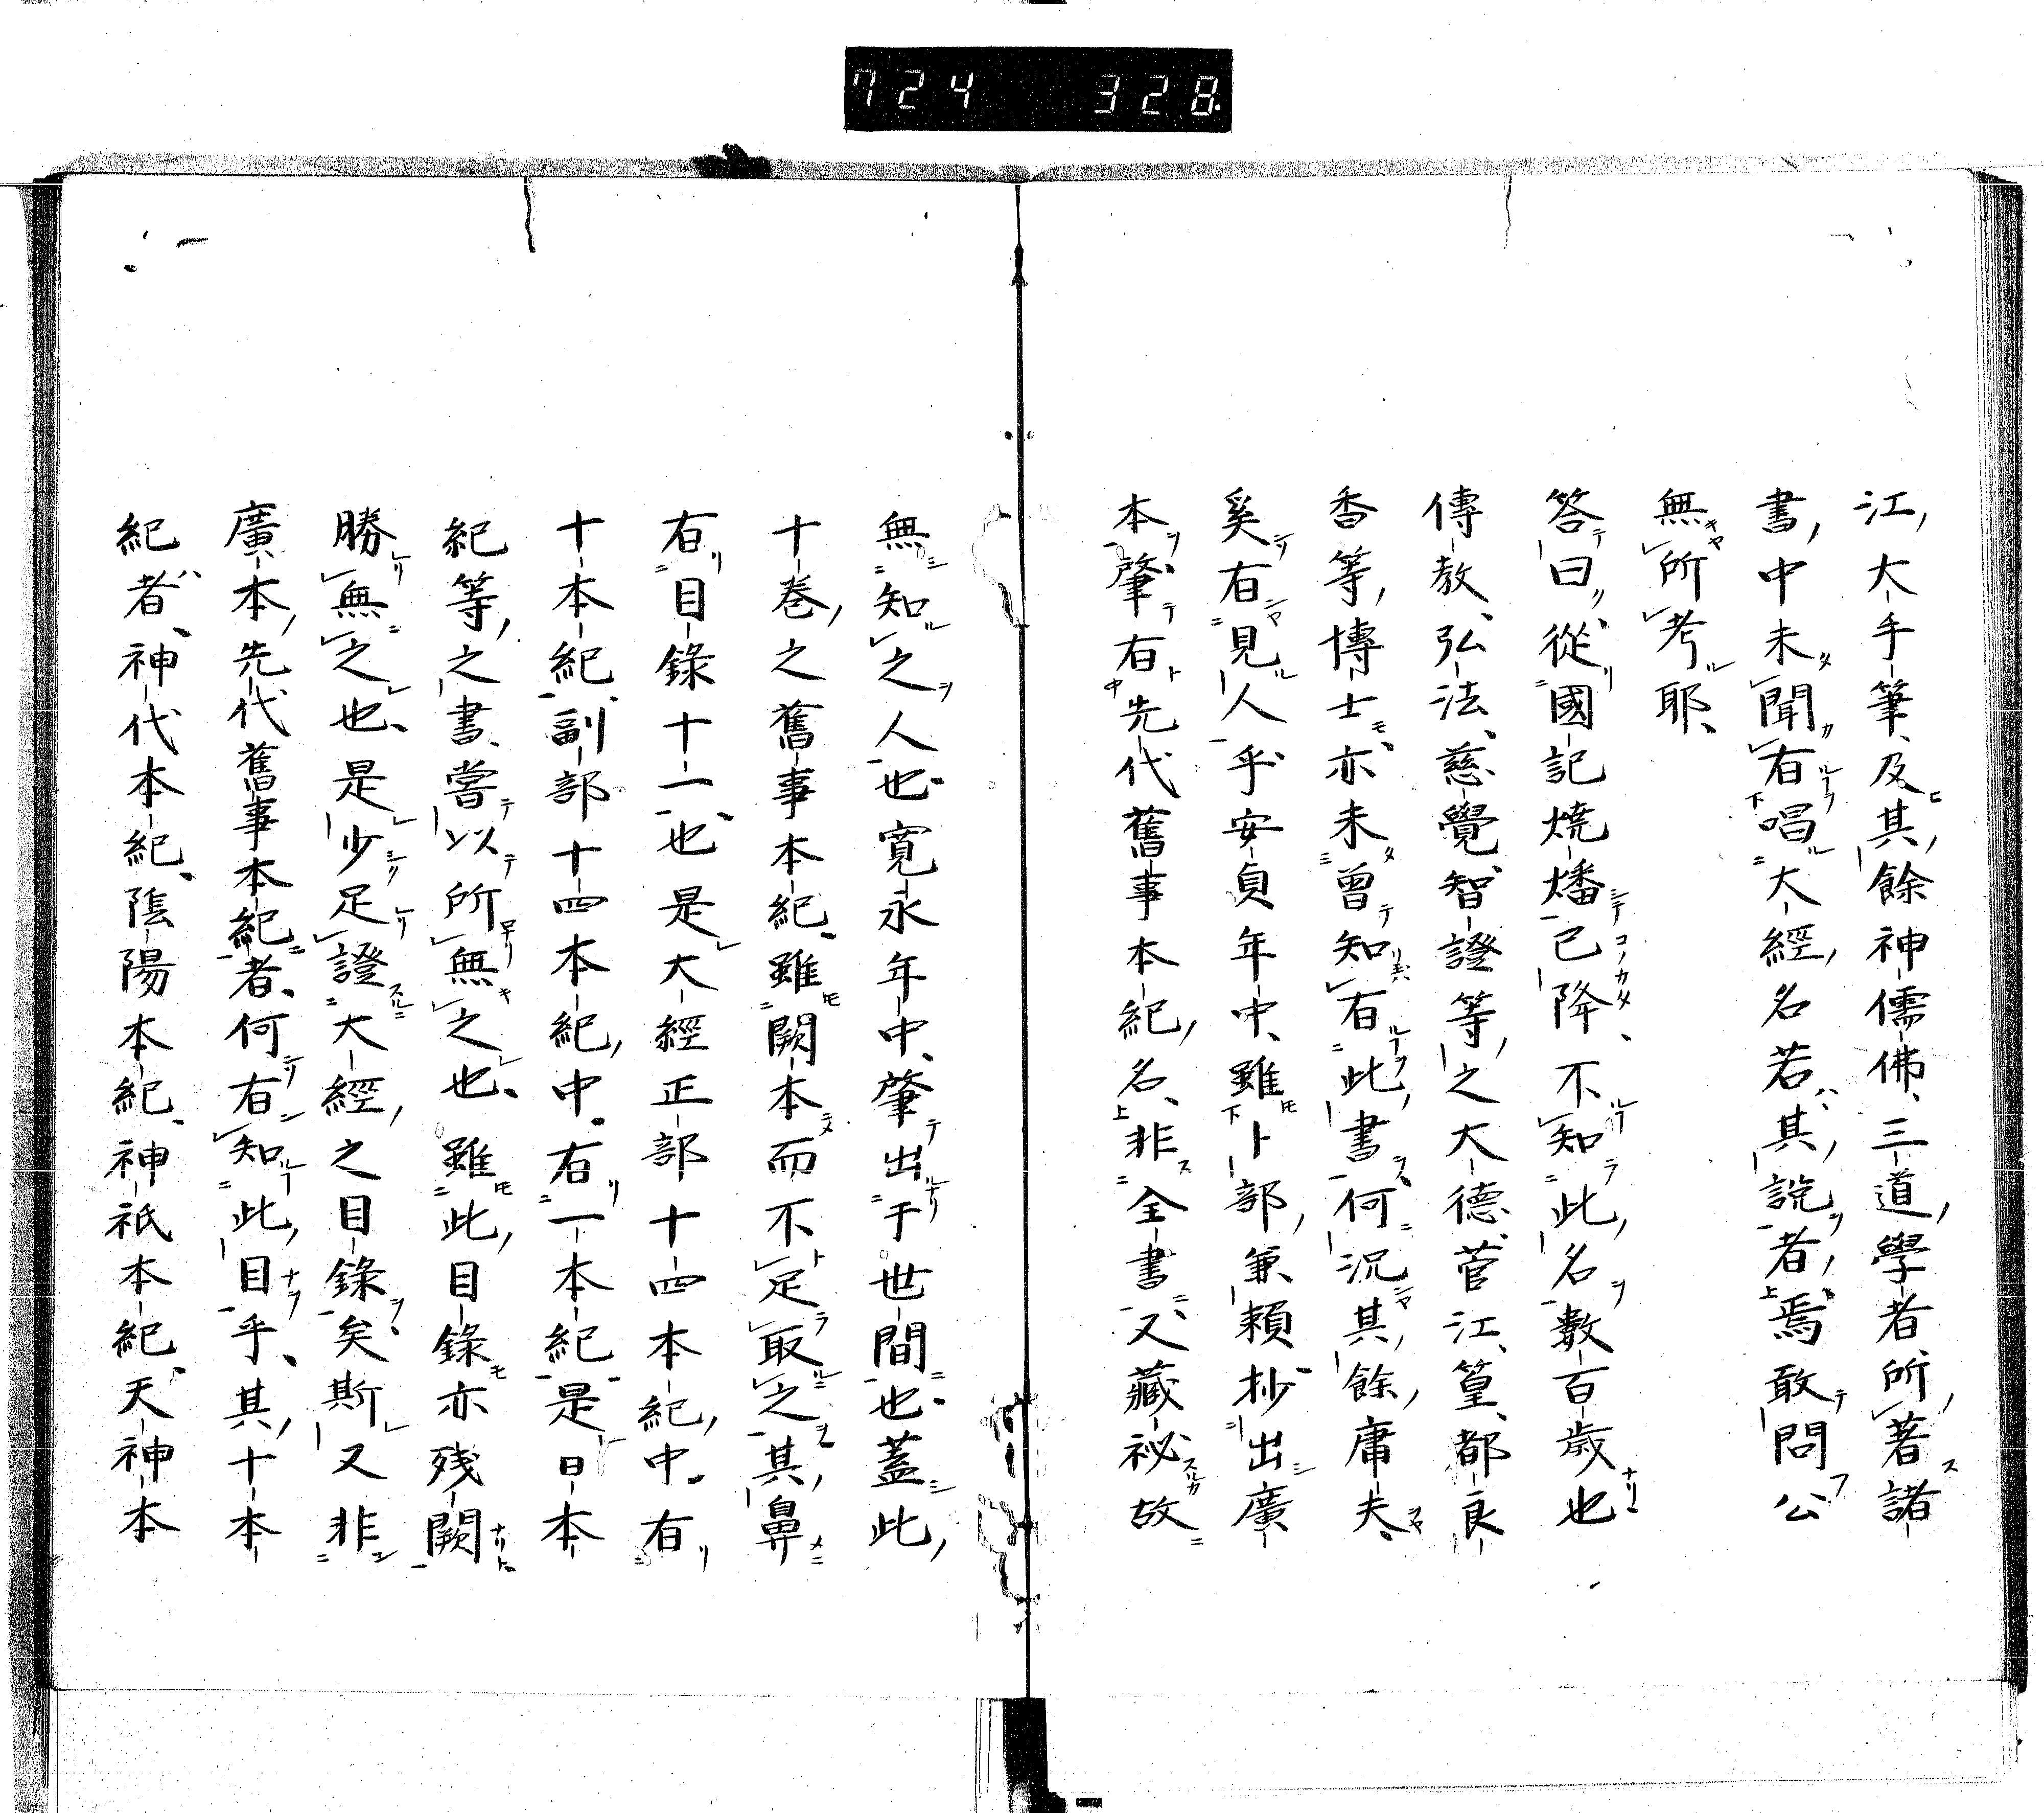 724 328
江大手筆及其餘神儒佛三道學者所著諸
書中未聞有唱大經名若其說者焉敢問公
無所考耶
答曰從國記燒燔已降不知此名數百歲也
傳教弘法慈覺智證等之大德菅江篁都良
香等博士亦未曾知有此書何況其餘庸夫
奚有見人乎安貞年中雖卜部兼賴抄出廣
本肇有先代舊事本紀名非全書又藏祕故
無知之人也寬永年中肇出于世間也蓋此
十卷之舊事本紀雖闕本而不足取之其鼻
有目錄十一也是大經正部十四本紀中有
十本紀副部十四本紀中有一本紀是日本
紀等之書嘗以所無之也雖此目錄亦殘闕
勝無之也是少足證大經之目錄矣斯又非
廣本先代舊事本紀者何有知此目乎其十本
紀者神代本紀陰陽本紀神祇本紀天神本